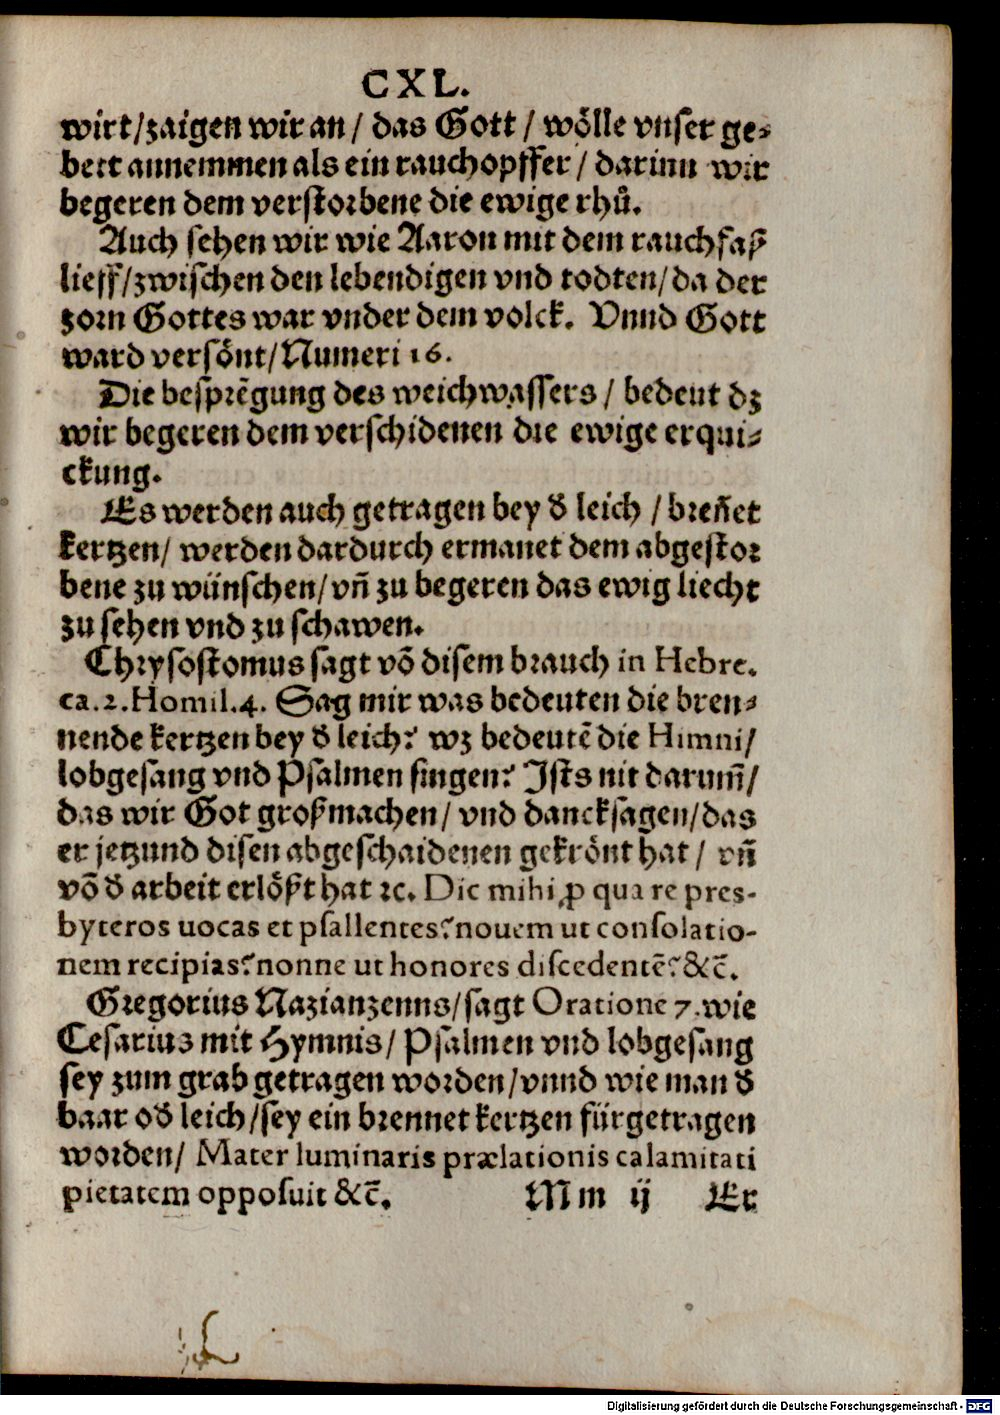 CXL.
wirt/zaigen wir an / das Gott / wölle vnser ge⸗
bett annemmen als ein rauchopffer / darinn wir
begeren dem verstorbene die ewige rhů.
Auch sehen wir wie Aaron mit dem rauchfaß
lieff/zwischen den lebendigen vnd todten/da der
zorn Gottes war vnder dem volck. Vnnd Gott
ward versönt/Numeri 16.
Die besprẽgung des weichwassers / bedeut dz
wir begeren dem verschidenen die ewige erqui⸗
ckung.
Es werden auch getragen bey d̕ leich / breñet
kertzen/ werden dardurch ermanet dem abgestor
bene zu wünschen/vñ zu begeren das ewig liecht
zu sehen vnd zu schawen.
Chrysostomus sagt võ disem brauch in Hebre.
ca.2.Homil.4. Sag mir was bedeuten die bren⸗
nende kertzen bey d̕ leich? wz bedeutẽ die Himni/
lobgesang vnd Psalmen singen? Ists nit darum̃/
das wir Got großmachen/ vnd dancksagen/das
er jetzund disen abgeschaidenen gekrönt hat/ vñ
võ d̕ arbeit erlößt hat ꝛc. Dic mihi ꝓ qua re pres-
byteros uocas et psallentes? nouem ut consolatio-
nem recipias? nonne ut honores discedentẽ? &c̃.
Gregorius Nazianzenns/sagt Oratione 7. wie
Cesarius mit Hymnis/ Psalmen vnd lobgesang
sey zum grab getragen worden/vnnd wie man d̕
baar od̕ leich/sey ein brennet kertzen fürgetragen
worden/ Mater luminaris prælationis calamitati
pietatem opposuit &c̃.
Mm ij Er
Digitalisierung gefördert durch die Deutsche Forschungsgemeinschaft - DFG